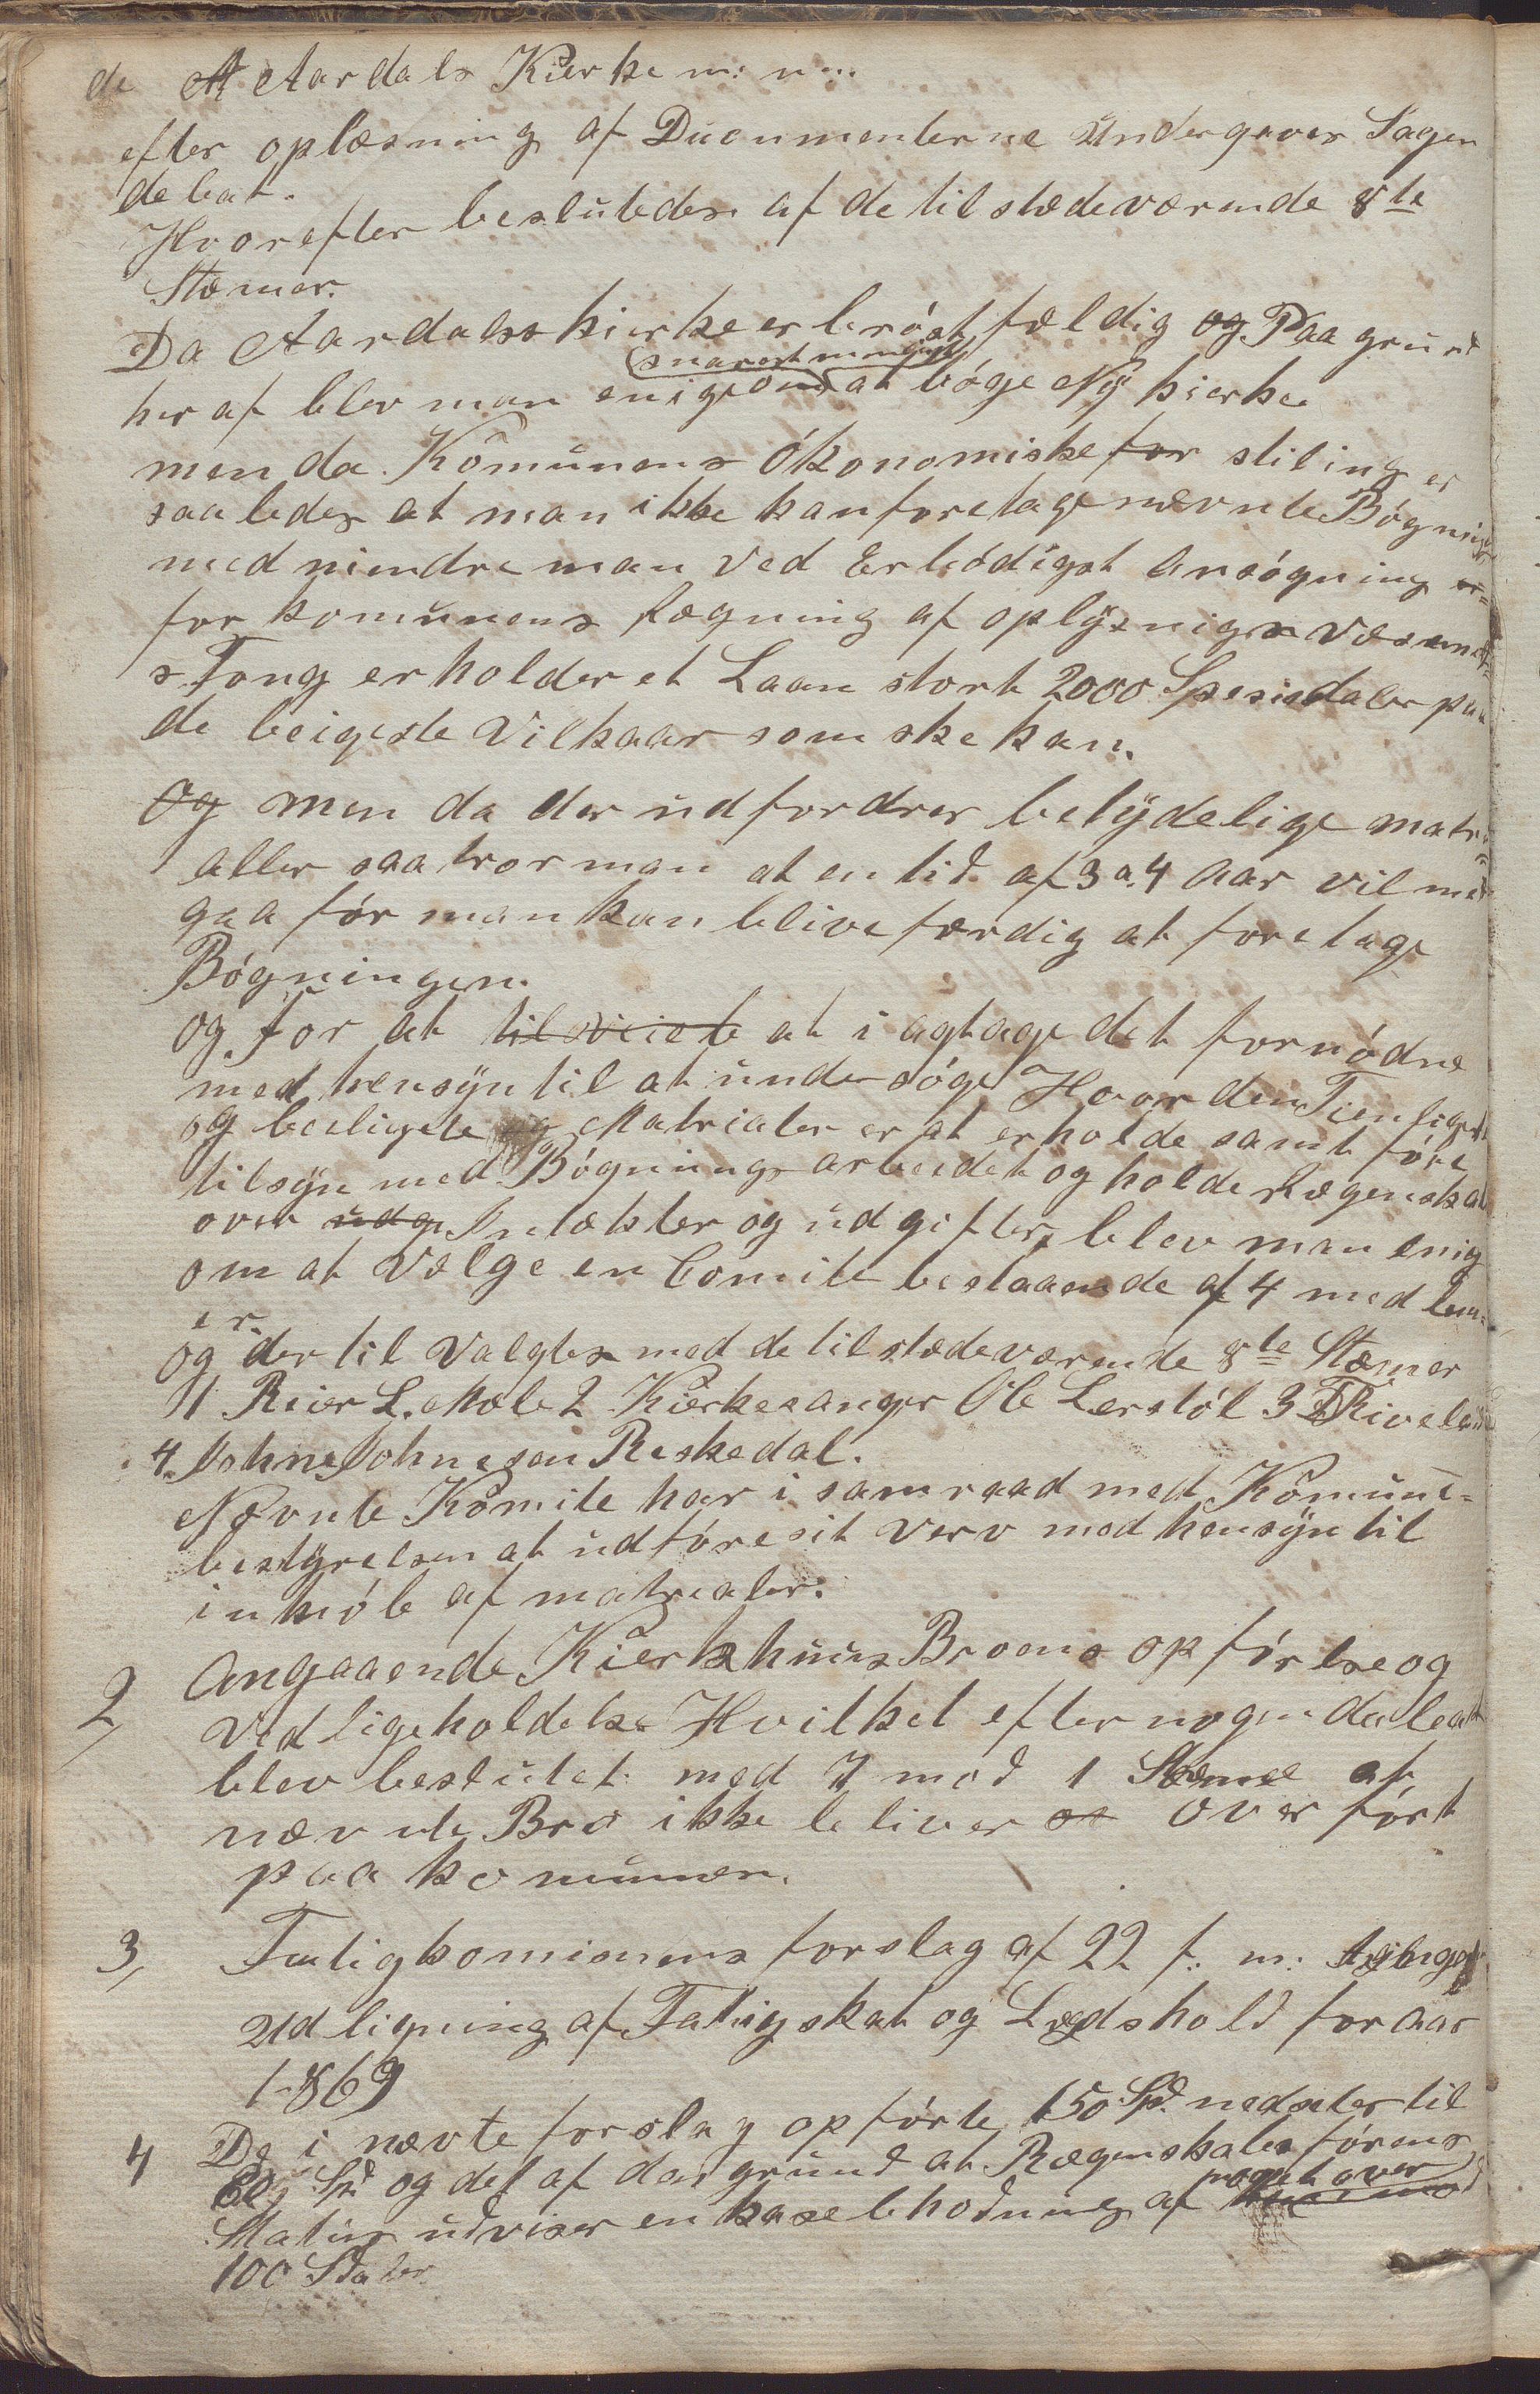 de Aardals Kierke m: m..
efter oplæsning af Ducumenterne Undergaves Sagen
debat.
Hvorefter besluttedes af de tilstædeværende 8te
Stemer.
Da Aardalsskierke er bröstfældig og Paa grund
her af blev man enige om snarest muligst at böge Ny kierke
men da Komunens Ókonomiske for stiling er
saaledes at man ikke kan foretage nævnte Bógning
med mindre man ved Erbódigst Ansógning
for komunens Rægning af oplÿsnigs væsenets
Fong erholder et Laan stort 2000 Spesiedaler paa
de beigeste Vilkaar som ske kan.
Og men da der udfordrer betÿdelige matri
aller saa tror man at en tid af 3 a 4 Aar vil med
gaa fór man kan blive færdig at foretage
Bógningen.
og for at til veiete at iagtage det fornódne
med hensÿn til at undersóge Hvor den Tienligste
og beiligste og Matrialer er at erholde samt fóre
tilsÿn med Bógnings arbeidet og holde Rægenskab
over udg Intækter og udgifter, blev man enig
om at Vælge en Comite bestaaende af 4 medlem-
er.
og der til Valgtes med de tilstædeværende 8te Stæmer
1 Reier L. Mæle 2 Kirkesanger Ole Lerstól 3 T Riveland
4. Johne Johnesen Reskedal.
Nævnte Komite har i samraad med Komune-
bestÿrelsen at udfóre sit Verv med hensÿn til
inkiób af matrialer.
2, Angaaende Kierkhuus Broens opfórlse og
Vedligeholdelse Hvilket efter nogen debat
blev beslutet med 7 mod 1 Stæme at
nævnte Bro ikke bliver over fórt
paa komunen.
3, Fatigkomisinens forslag af 22 f. m:
Udligning af Fatigskat og Lægdshold for Aar
1869
4 De i nævte forslag opfórte 150 Spd. nedsætes til
Spd og det af den grund at Rægenskabsfórens
Status udviser en kasebeholdning af noget over
100 Sdaler.